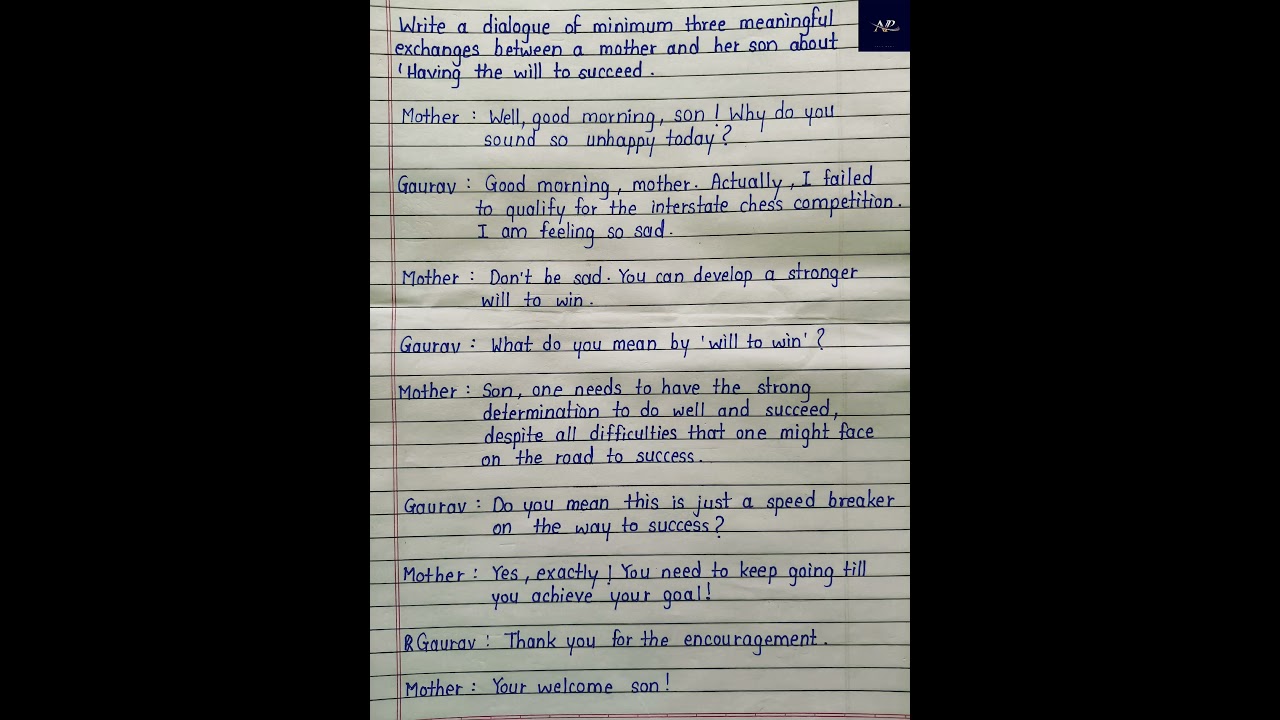 Write a dialogue of minimum three meaningful
exchanges between a mother and her son about
'Having the will to succeed.
Mother : Well, good morning, son ! Why do you
sound so unhappy today ?
Gaurav : Good morning, mother. Actually, I failed
to qualify for the interstate chess competition.
I am feeling so sad.
Mother : Don't be sad. You can develop a stronger
will to win.
Gaurav : What do you mean by 'will to win' ?
Mother : Son, one needs to have the strong
determination to do well and succeed,
despite all difficulties that one might face
on the road to success.
Gaurav : Do you mean this is just a speed breaker
on the way to success ?
Mother : Yes, exactly ! You need to keep going till
you achieve your goal !
Gaurav : Thank you for the encouragement.
Mother : Your welcome son !